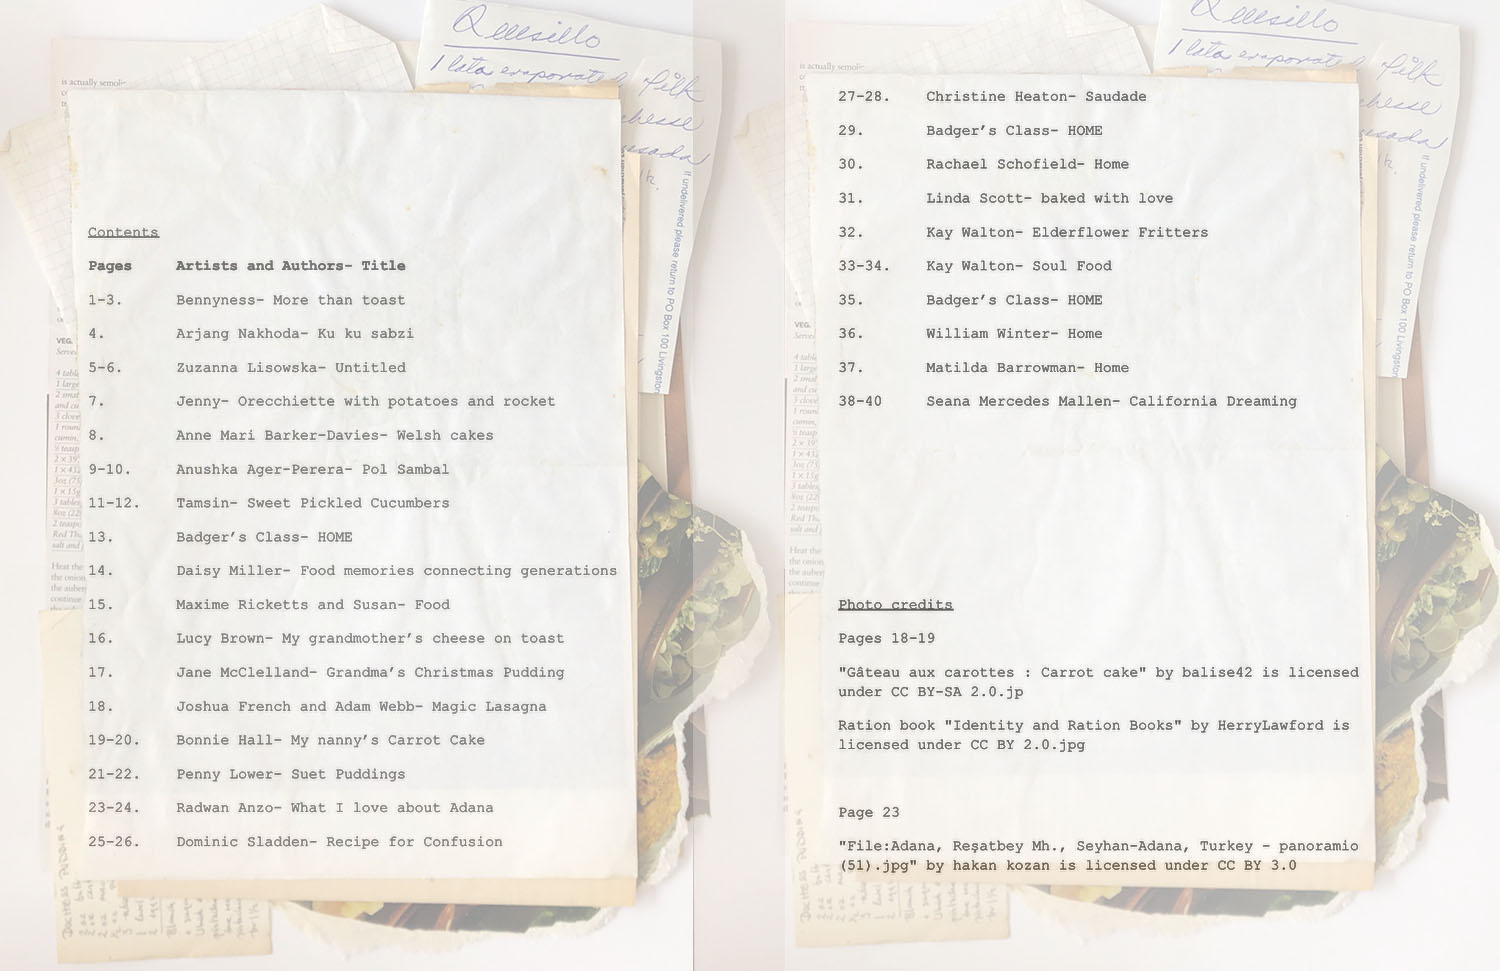 Quesillo
1 lata evaporated milk
is actually semoli
Contents
Pages Artists and Authors- Title
1-3. Bennyness- More than toast
4. Arjang Nakhoda- Ku ku sabzi
5-6. Zuzanna Lisowska- Untitled
7. Jenny- Orecchiette with potatoes and rocket
8. Anne Mari Barker-Davies- Welsh cakes
9-10. Anushka Ager-Perera- Pol Sambal
11-12. Tamsin- Sweet Pickled Cucumbers
13. Badger’s Class- HOME
14. Daisy Miller- Food memories connecting generations
15. Maxime Ricketts and Susan- Food
16. Lucy Brown- My grandmother’s cheese on toast
17. Jane McClelland- Grandma’s Christmas Pudding
18. Joshua French and Adam Webb- Magic Lasagna
19-20. Bonnie Hall- My nanny’s Carrot Cake
21-22. Penny Lower- Suet Puddings
23-24. Radwan Anzo- What I love about Adana
25-26. Dominic Sladden- Recipe for Confusion
If undelivered please return to PO Box 100 Livingston
27-28. Christine Heaton- Saudade
29. Badger’s Class- HOME
30. Rachael Schofield- Home
31. Linda Scott- baked with love
32. Kay Walton- Elderflower Fritters
33-34. Kay Walton- Soul Food
35. Badger’s Class- HOME
36. William Winter- Home
37. Matilda Barrowman- Home
38-40 Seana Mercedes Mallen- California Dreaming
Photo credits
Pages 18-19
"Gâteau aux carottes : Carrot cake" by balise42 is licensed
under CC BY-SA 2.0.jp
Ration book "Identity and Ration Books" by HerryLawford is
licensed under CC BY 2.0.jpg
Page 23
"File:Adana, Reşatbey Mh., Seyhan-Adana, Turkey - panoramio
(51).jpg" by hakan kozan is licensed under CC BY 3.0
If undelivered please return to PO Box 100 Livingston